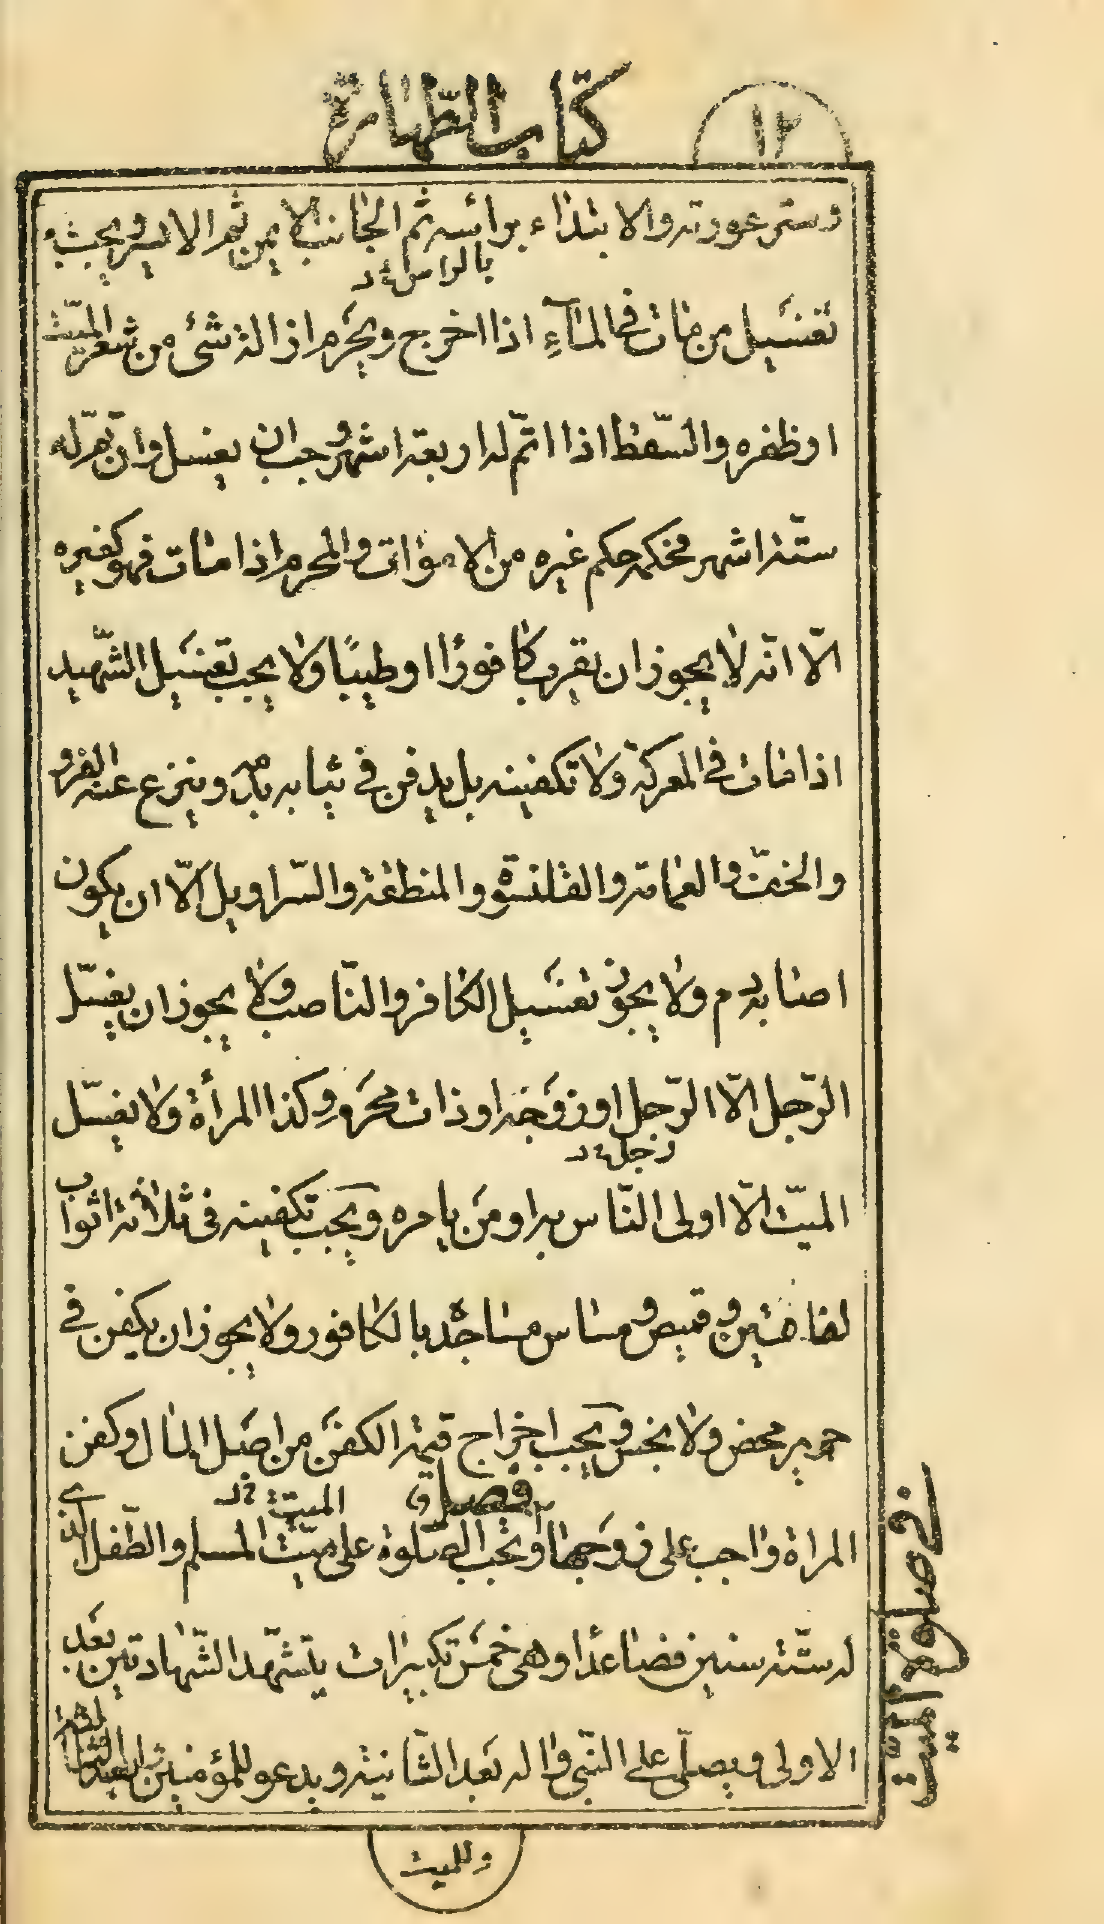 ١٢
كتاب الطهارة
وستر عورته والابتداء براسه ثم الجانب الايمن ثم الايسر ويجب
بالراس
تغسيل من مات في الماء اذا اخرج ويحرم ازالة شئ من شعر الميت
او ظفره والسقط اذا اتم له اربعة اشهر وجب ان يغسل وان تم له
ستة اشهر فحكمه حكم غيره من الاموات والمحرم اذا مات فهو كغيره
الا انه لا يجوز ان يقرب كافورًا او طيبًا ولا يجب تغسيل الشهيد
اذا مات في المعركة ولا تكفينه بل يدفن في ثيابه بدمه وينزع عنه الفرو
والخف والعمامة والقلنسوة والمنطقة والسراويل الا ان يكون
اصابه دم ولا يجوز تغسيل الكافر والناصب ولا يجوز ان يغسل
الرجل الا الرجل او زوجته او ذات محرم وكذا المرأة ولا يغسل
رجل
الميت الا اولى الناس به او من يامره ويجب تكفينه في ثلاثة اثواب
لفافتين وقميص ومساس مساجده بالكافور ولا يجوز ان يكفن في
حرير محض ولا نجس ويجب اخراج قيمة الكفن من اصل المال وكفن
فصل الميت
المراة واجب على زوجها وتجب الصلوة على ميت المسلم والطفل الذي
له ستة سنين فصاعدًا وهي خمس تكبيرات يتشهد الشهادتين بعد
الاولى ويصلي على النبي واله بعد الثانية ويدعو للمؤمنين بعد الثالثة
في صلوة الميت
وللميت